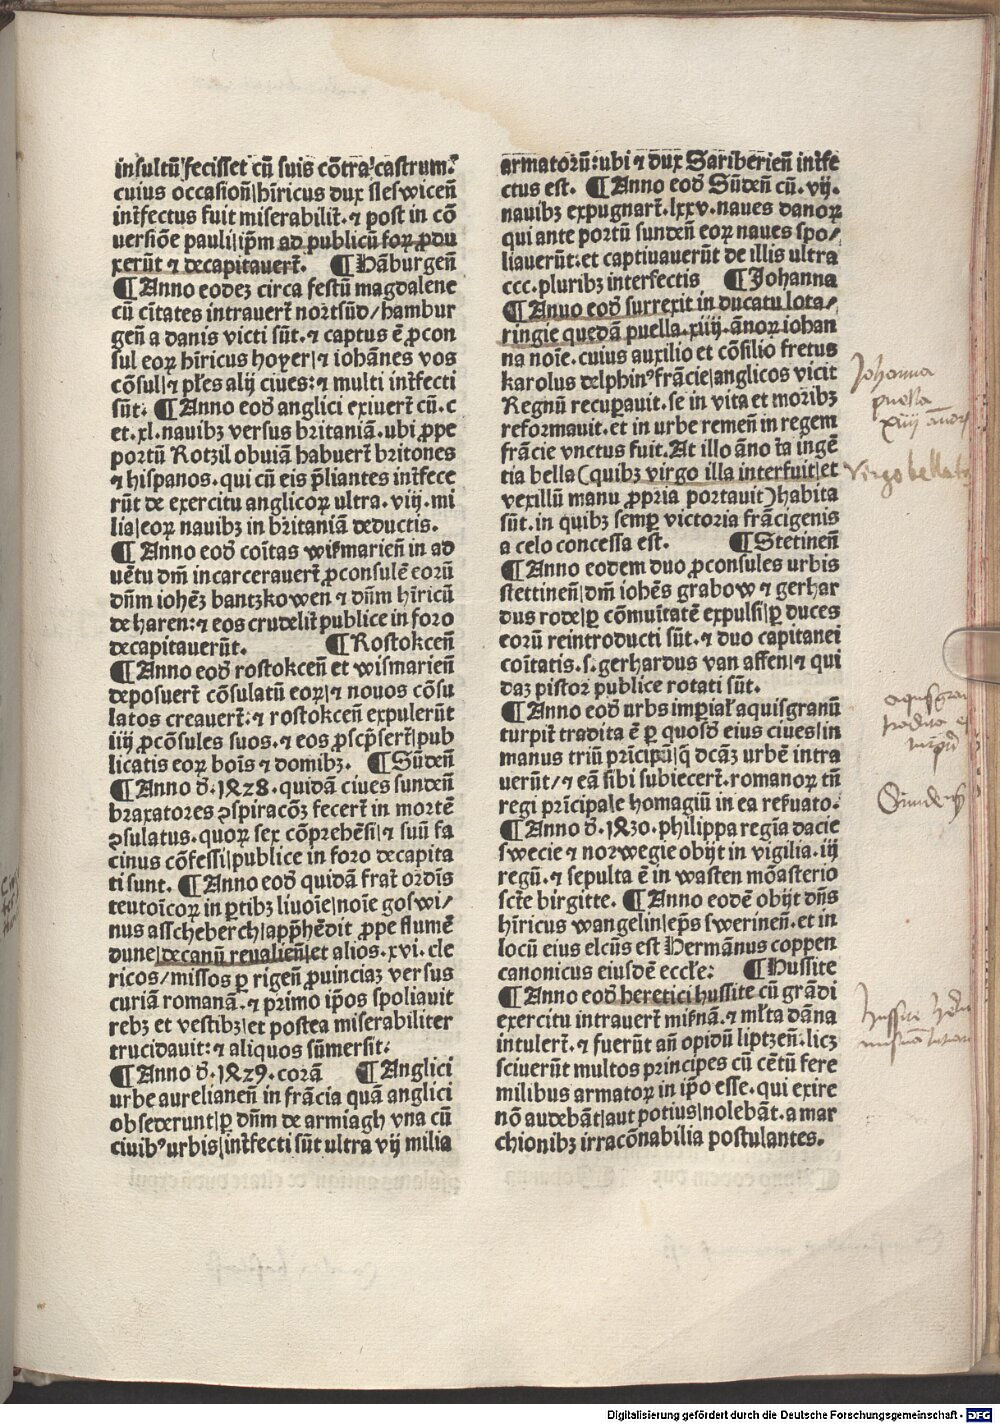 insultũ fecisset cũ suis cõtra castrum.
cuius occasioñ|hĩricus dux sleswiceñ
inťfectus fuit miserabiliť. ⁊ post in cõ
uersiõe pauli|ip̃m ad publicũ forꝝ ꝓdu
xerũt ⁊ decapitauerť. ¶ Hãburgeñ
¶ Anno eodeȝ circa festũ magdalene
cũ cĩtates intrauerť nortsũd/hambur
geñ a danis victi sũt. ⁊ captus ẽ ꝓcon
sul eoꝝ hĩricus hoyer|⁊ iohãnes vos
cõsul|⁊ pľes alij ciues: ⁊ multi inťfecti
sũt. ¶ Anno eoď anglici exiuerť cũ. c
et. xl. nauibȝ versus britaniã. ubi ꝓpe
portũ Rotzil obuiã habuerť britones
⁊ hispanos. qui cũ eis p̃liantes inťfece
rũt de exercitu anglicoꝝ ultra. viij. mi
lia|eoꝝ nauibȝ in britaniã deductis.
¶ Anno eoď coĩtas wismarieñ in ad
uẽtu dm̃ incarcerauerť ꝓconsulẽ eorũ
dñm iohẽȝ bantzkowen ⁊ dñm hĩricũ
de haren: ⁊ eos crudeliť publice in foro
decapitauerũt. ¶ Rostokceñ
¶ Anno eoď rostokceñ et wismarieñ
deposuerť cõsulatũ eoꝝ|⁊ nouos cõsu
latos creauerť. ⁊ rostokceñ expulerũt
iiij ꝓcõsules suos. ⁊ eos ꝓscp̃serť|pub
licatis eoꝝ boĩs ⁊ domibȝ. ¶ Sũdeñ
¶ Anno ď. 1428. quidã ciues sundeñ
braxatores ꝯspiracõȝ fecerť in mortẽ
ꝯsulatus. quoꝝ sex cõprehẽsi|⁊ suũ fa
cinus cõfessi|publice in foro decapita
ti sunt. ¶ Anno eoď quidã frať ordĩs
teutoĩcoꝝ in ꝑtibȝ liuoĩe|noĩe goswi/
nus asscheberch|app̃hẽdit ꝓpe flumẽ
dune|decanũ reualieñ|et alios. xvi. cle
ricos/missos ꝑ rigeñ ꝓuinciaȝ versus
curiã romanã. ⁊ primo ip̃os spoliauit
rebȝ et vestibȝ|et postea miserabiliter
trucidauit: ⁊ aliquos sũmersit.
¶ Anno ď. 1429. corã ¶ Anglici
urbe aurelianeñ in frãcia quã anglici
obsederunt|ꝑ dñm de armiagh vna cũ
ciuibꝰ urbis|inťfecti sũt ultra vij milia
armatorũ: ubi ⁊ dux Sariberieñ inťfe
ctus est. ¶ Anno eoď Sũdeñ cũ. vij.
nauibȝ expugnarť. lxxv. naues danoꝝ
qui ante portũ sundeñ eoꝝ naues spo/
liauerũt. et captiuauerũt de illis ultra
ccc. pluribȝ interfectis ¶ Johanna
¶ Anno eoď surrexit in ducatu lota/
ringie quedã puella. xiiij. ãnoꝝ iohan
na noĩe. cuius auxilio et cõsilio fretus
karolus delphinꝰ frãcie|anglicos vicit
Regnũ recuꝑauit. se in vita et moribȝ
reformauit. et in urbe remeñ in regem
frãcie vnctus fuit. At illo ãno ťa ingẽ
tia bella (quibȝ virgo illa interfuit|et
vexillũ manu ꝓpria portauit) habita
sũt. in quibȝ semꝑ victoria frãcigenis
a celo concessa est. ¶ Stetineñ
¶ Anno eodem duo ꝓconsules urbis
stettineñ|dm̃ iohẽs grabow ⁊ gerhar
dus rode|ꝑ cõmuĩtatẽ expulsi|ꝑ duces
eorũ reintroducti sũt. ⁊ duo capitanei
coĩtatis. s. gerhardus van affen|⁊ qui
daȝ pistor publice rotati sũt.
¶ Anno eoď urbs imꝑiaľ aquisgranũ
turpiť tradita ẽ ꝑ quosď eius ciues|in
manus triũ prĩcipũ|q̃ dcãȝ urbẽ intra
uerũt/⁊ eã sibi subiecerť. romanoꝝ tñ
regi prĩcipale homagiũ in ea reẜuato.
¶ Anno ď. 1430. philippa regĩa dacie
swecie ⁊ norwegie obijt in vigilia. iij
regũ. ⁊ sepulta ẽ in wasten mõasterio
scťe birgitte. ¶ Anno eodẽ obijt dñs
hĩricus wangelin|ep̃s swerineñ. et in
locũ eius elcũs est Hermãnus coppen
canonicus eiusdẽ eccľe: ¶ Hussite
¶ Anno eoď heretici hussite cũ grãdi
exercitu intrauerť misnã. ⁊ mľta dãna
intulerť. ⁊ fuerũt añ opidũ liptzeñ. licȝ
sciuerũt multos principes cũ cẽtũ fere
milibus armatoꝝ in ip̃o esse. qui exire
nõ audebãt|aut potius|nolebãt. a mar
chionibȝ irracõnabilia postulantes.
Johanna
puella
xiiij annoꝝ
Virgo bellat
aquisgran
tradita
Hussite
Digitalisierung gefördert durch die Deutsche Forschungsgemeinschaft - DFG